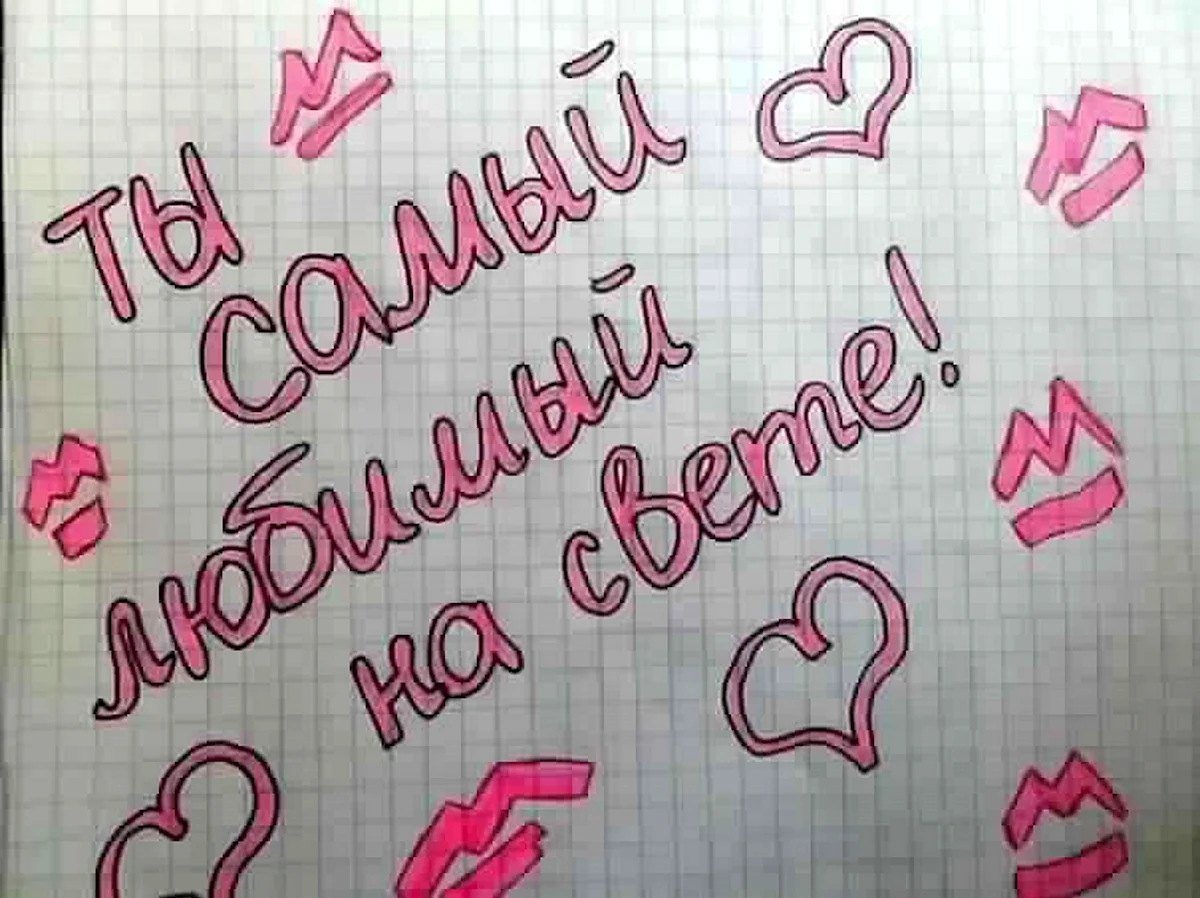 Ты
самый
любимый
на свете!